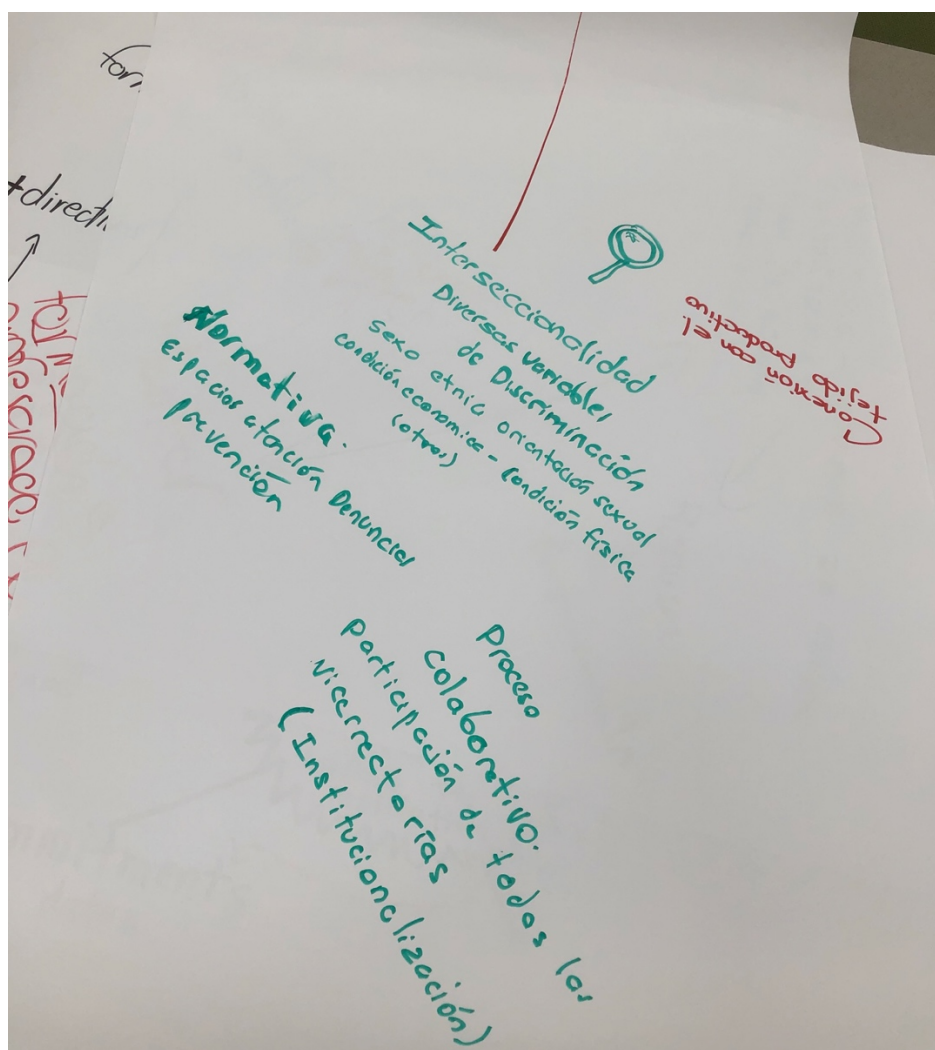 +direct
Interseccionalidad
Diversas variables
de Discriminación
sexo etnia orientación sexual
condición economica - condición física
(otras)
Conexión con el
tejido productivo
Normativa.
Espacios atención Denuncias
prevención
Proceso
colaborativo.
participación de todas las
Vicerrectorías
(Institucionalización)